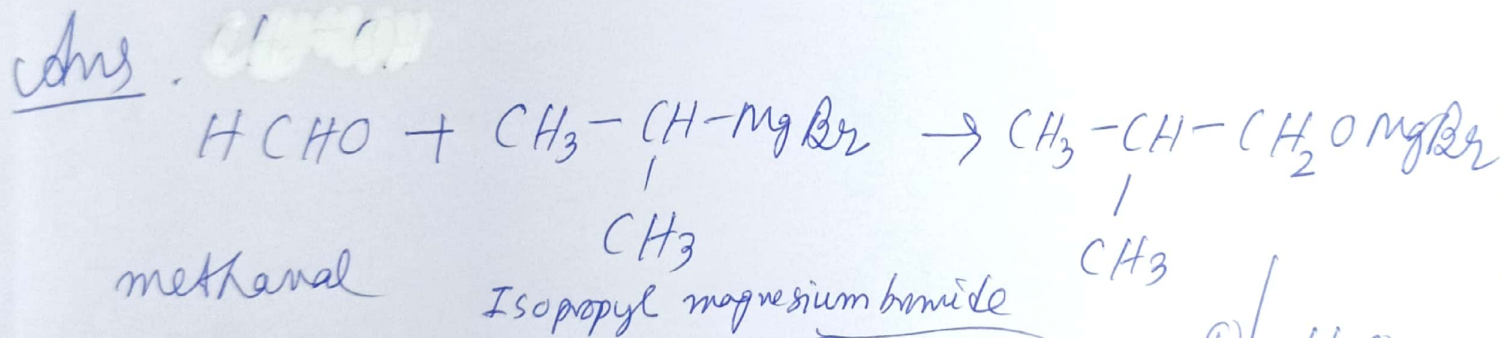 Ans.
HCHO + CH3 - CH - MgBr → CH3 - CH - CH2OMgBr
CH3 CH3
methanal Isopropyl magnesium bromide